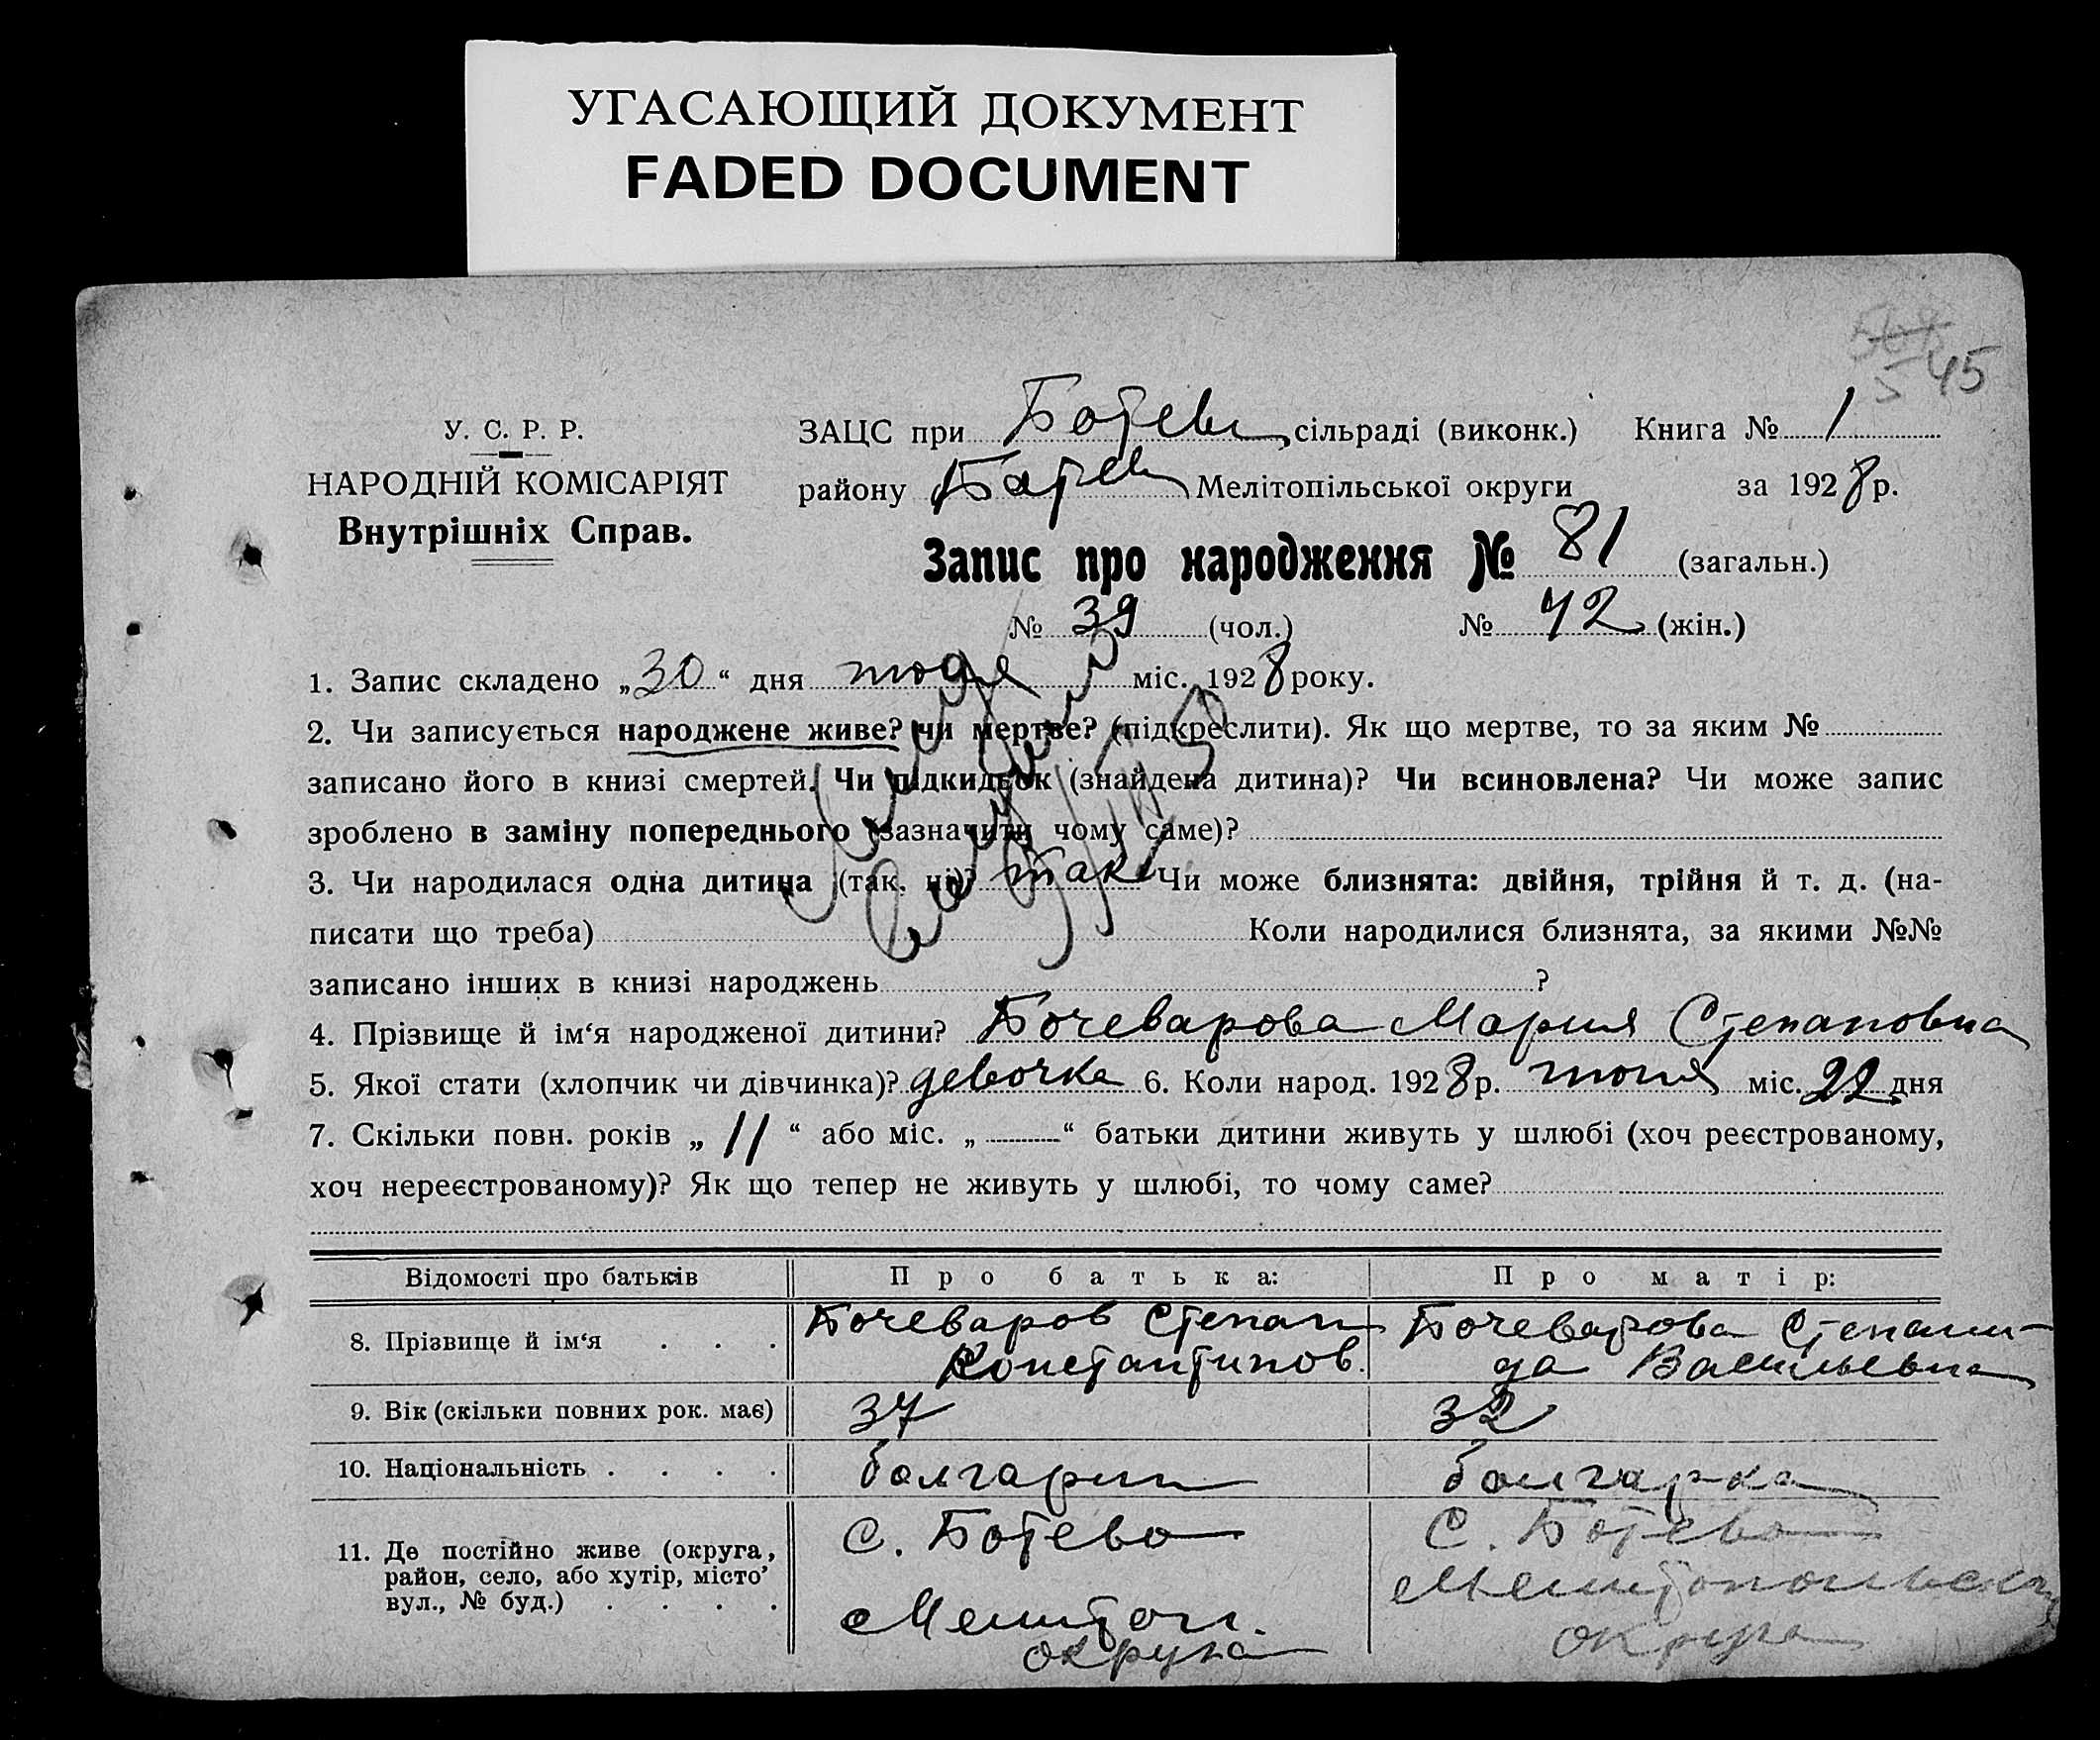 УГАСАЮЩИЙ ДОКУМЕНТ
FADED DOCUMENT
45
У. С. Р. Р.
НАРОДНІЙ КОМІСАРІЯТ
Внутрішніх Справ.
ЗАЦС при Ботев сільраді (виконк.) Книга № 1
району Мелітопільської округи за 1928 р.
Запис про народження № 81 (загальн.)
№ 39 (чол.) № 42 (жін.)
1. Запис складено „30“ дня міс. 1928 року.
2. Чи записується народжене живе? чи мертве? (підкреслити). Як що мертве, то за яким №
записано його в книзі смертей. Чи підкидьок (знайдена дитина)? Чи всиновлена? Чи може запис
зроблено в заміну попереднього (зазначити чому саме)?
3. Чи народилася одна дитина (так. ні)? так Чи може близнята: двійня, трійня й т. д. (на-
писати що треба) Коли народилися близнята, за якими №№
записано інших в книзі народжень ?
4. Прізвище й ім‘я народженої дитини? Бочеварова Мария Степановна
5. Якої стати (хлопчик чи дівчинка)? девочка 6. Коли народ. 1928 р. міс. 22 дня
7. Скільки повн. років „ 11 “ або міс. „ “ батьки дитини живуть у шлюбі (хоч реєстрованому,
хоч нереєстрованому)? Як що тепер не живуть у шлюбі, то чому саме?
Відомості про батьків Про батька: Про матір:
8. Прізвище й ім‘я . . . Бочеваров Степан Константинов. Бочеварова Степани-да Васильевна
9. Вік (скільки повних рок. має) 37 32
10. Національність . . . . болгарин болгарка
11. Де постійно живе (округа, район, село, або хутір, місто’ вул., № буд.) . . . . с. Ботево Мелитоп. округа с. Ботево Мелитопольск округа